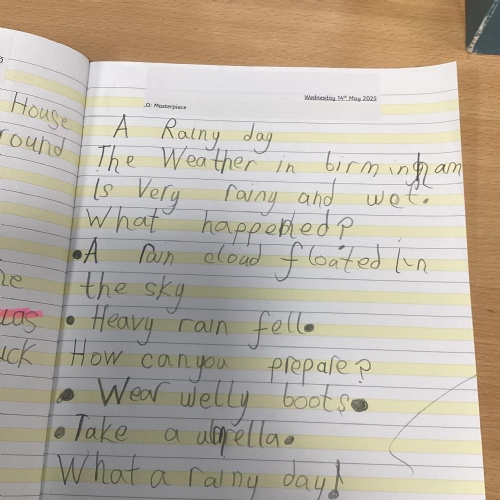 House
round
he
las
uck
LO: Masterpiece
Wednesday 14th May 2025
A Rainy day
The Weather in birmingham
Is Very rainy and wet.
What happened?
• A rain cloud floated in
the sky
• Heavy rain fell.
How can you prepare?
• Wear welly boots.
• Take a umbrella.
What a rainy day!